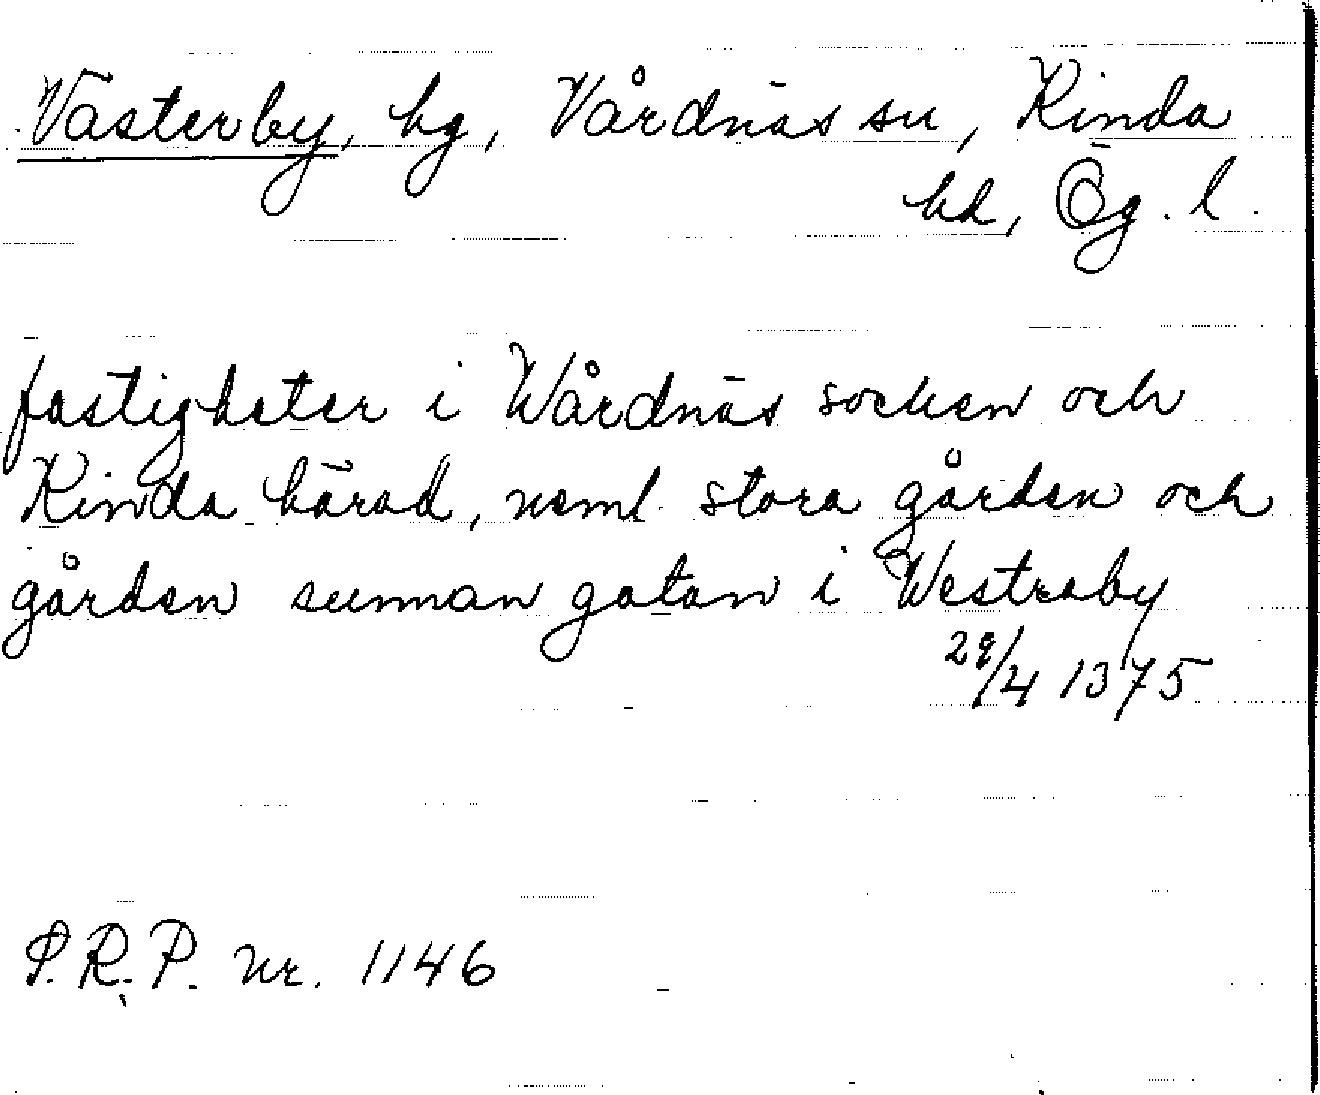 Västerby, hg, Vårdnäs sn, Kinda
hd, Ög. l.
fastigheter i Wårdnäs socken och
Kinda härad, neml. stora gården och
gården sunnan gatan i Westraby
29/4 1375
S.R.P. nr. 1146